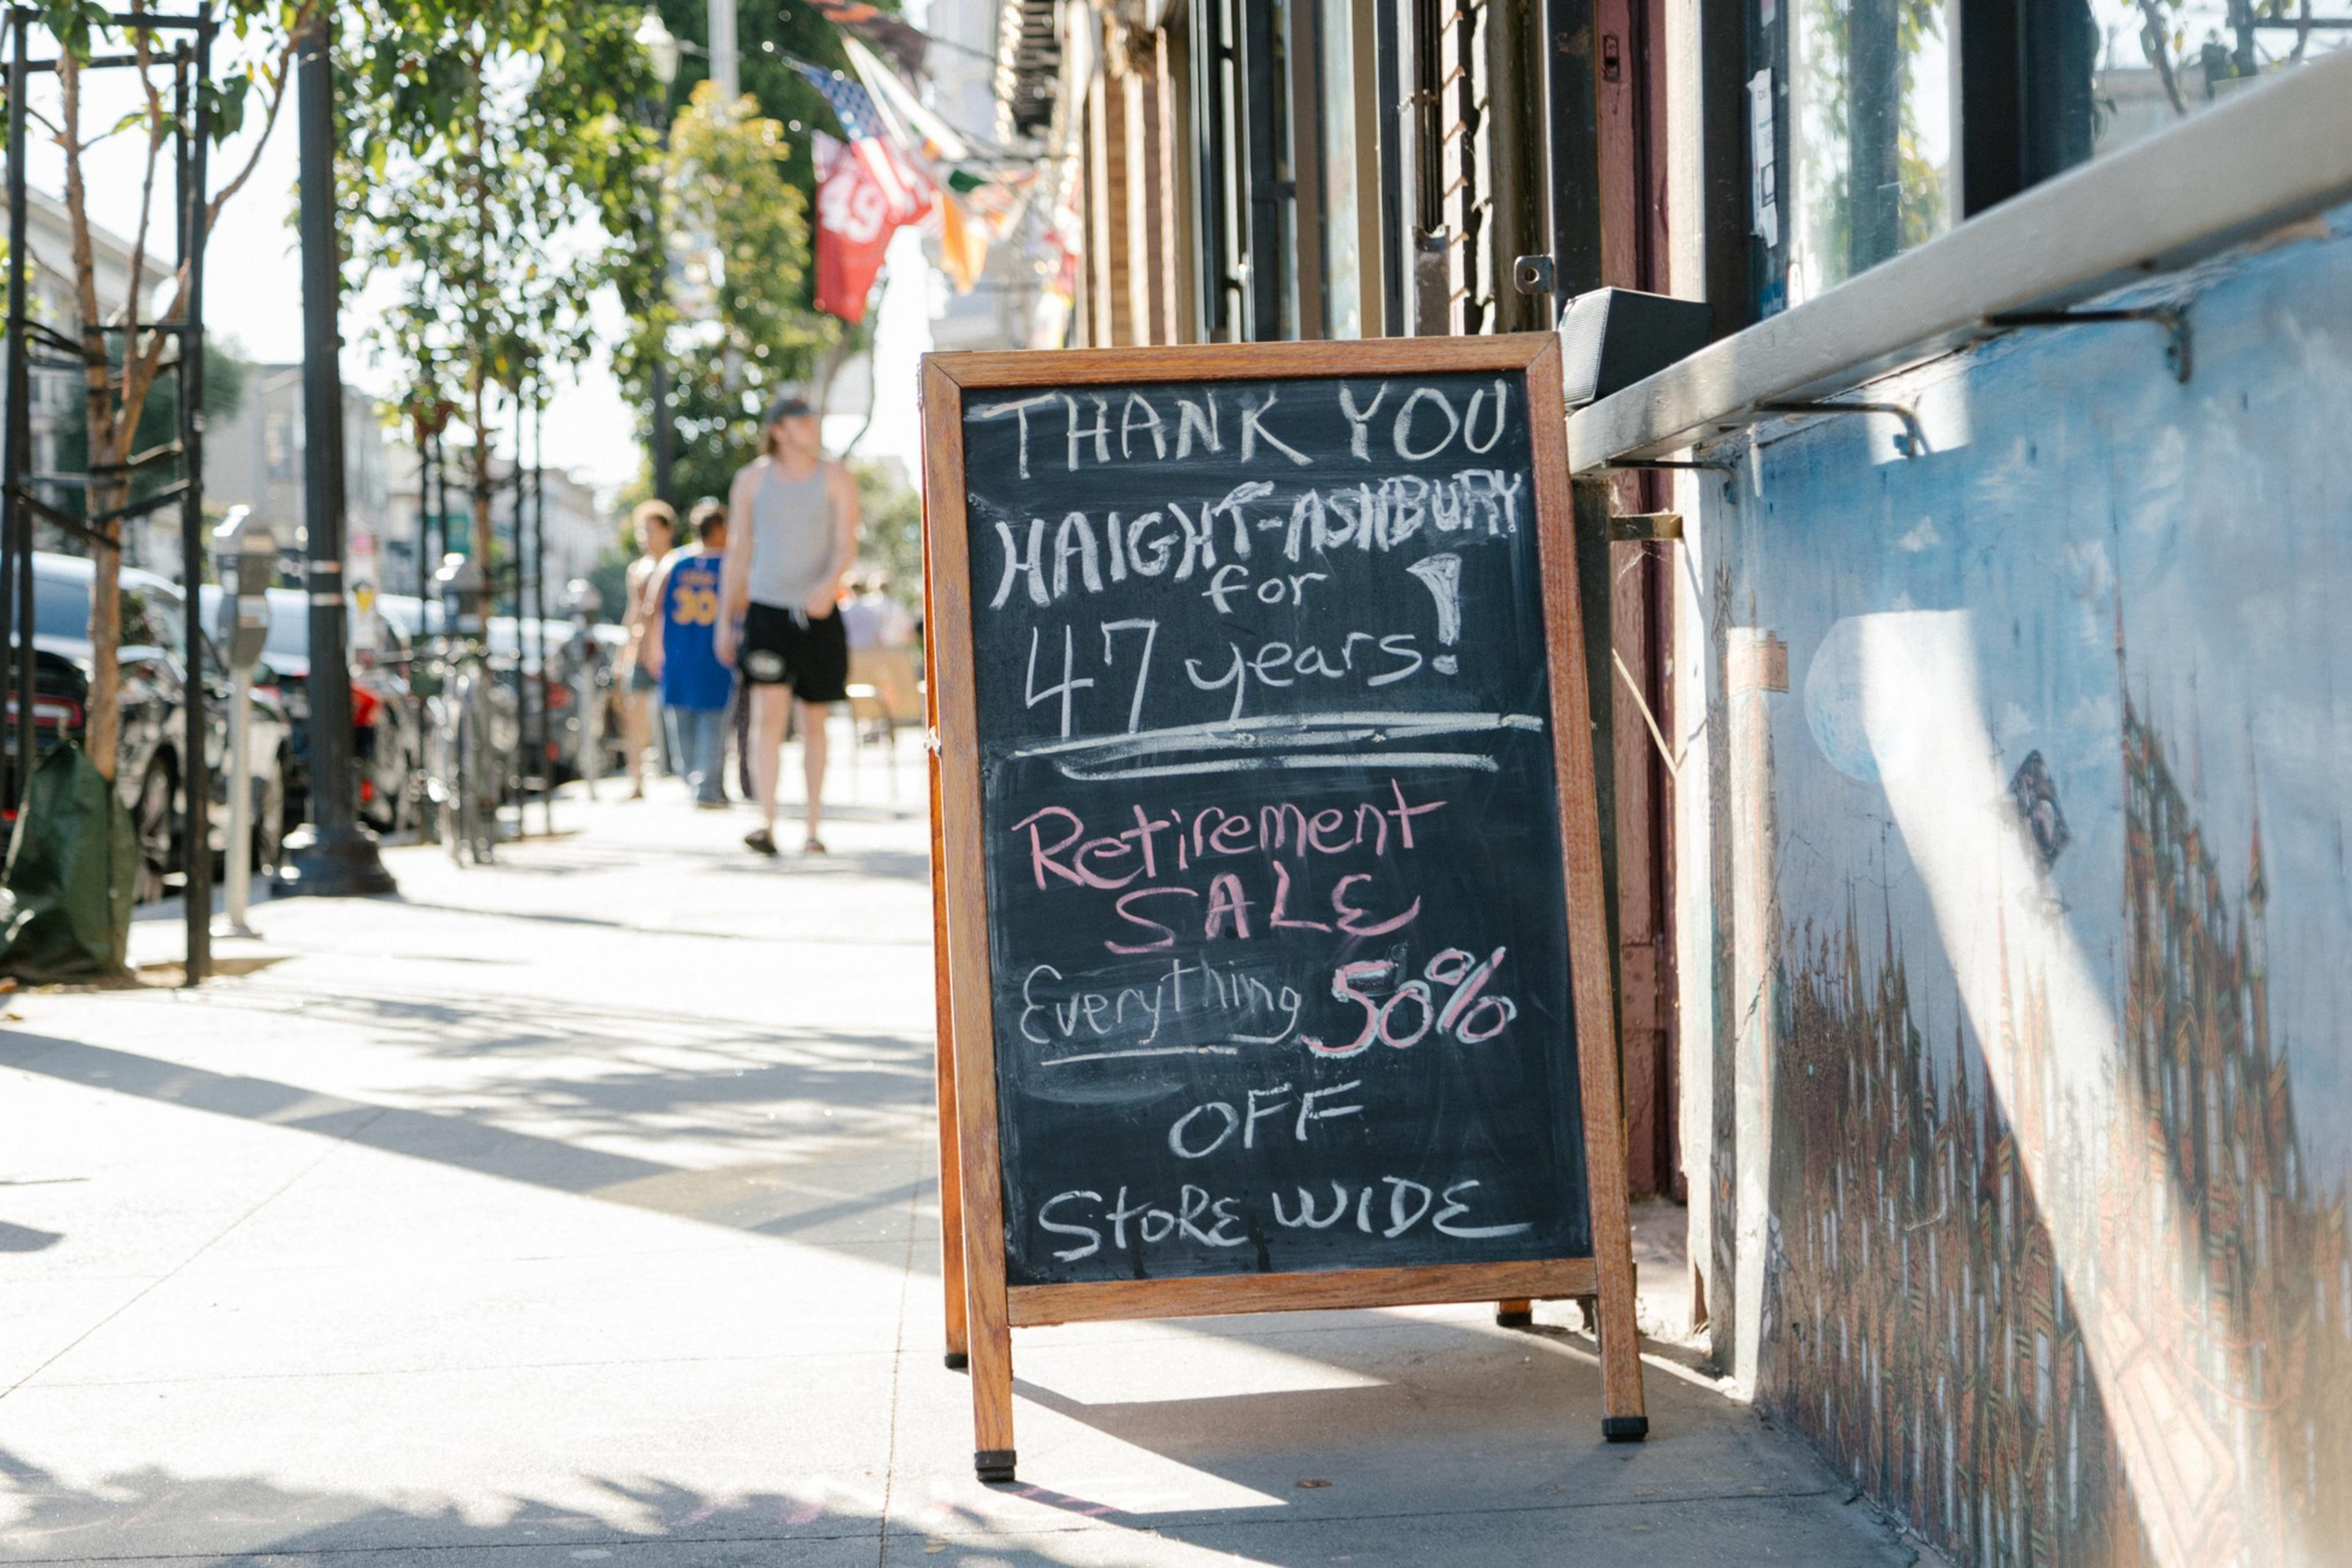 THANK YOU
HAIGHT-ASHBURY
for
47 years!
Retirement
SALE
Everything 50%
OFF
STORE WIDE
49
30